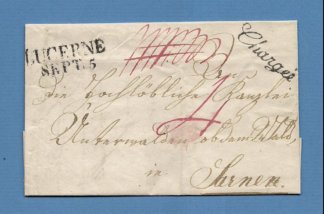 LUCERNE
SEPT. 5
Chargée
Die Hochlöbliche Kanzlei
Unterwalden ob dem Wald,
in
Sarnen.